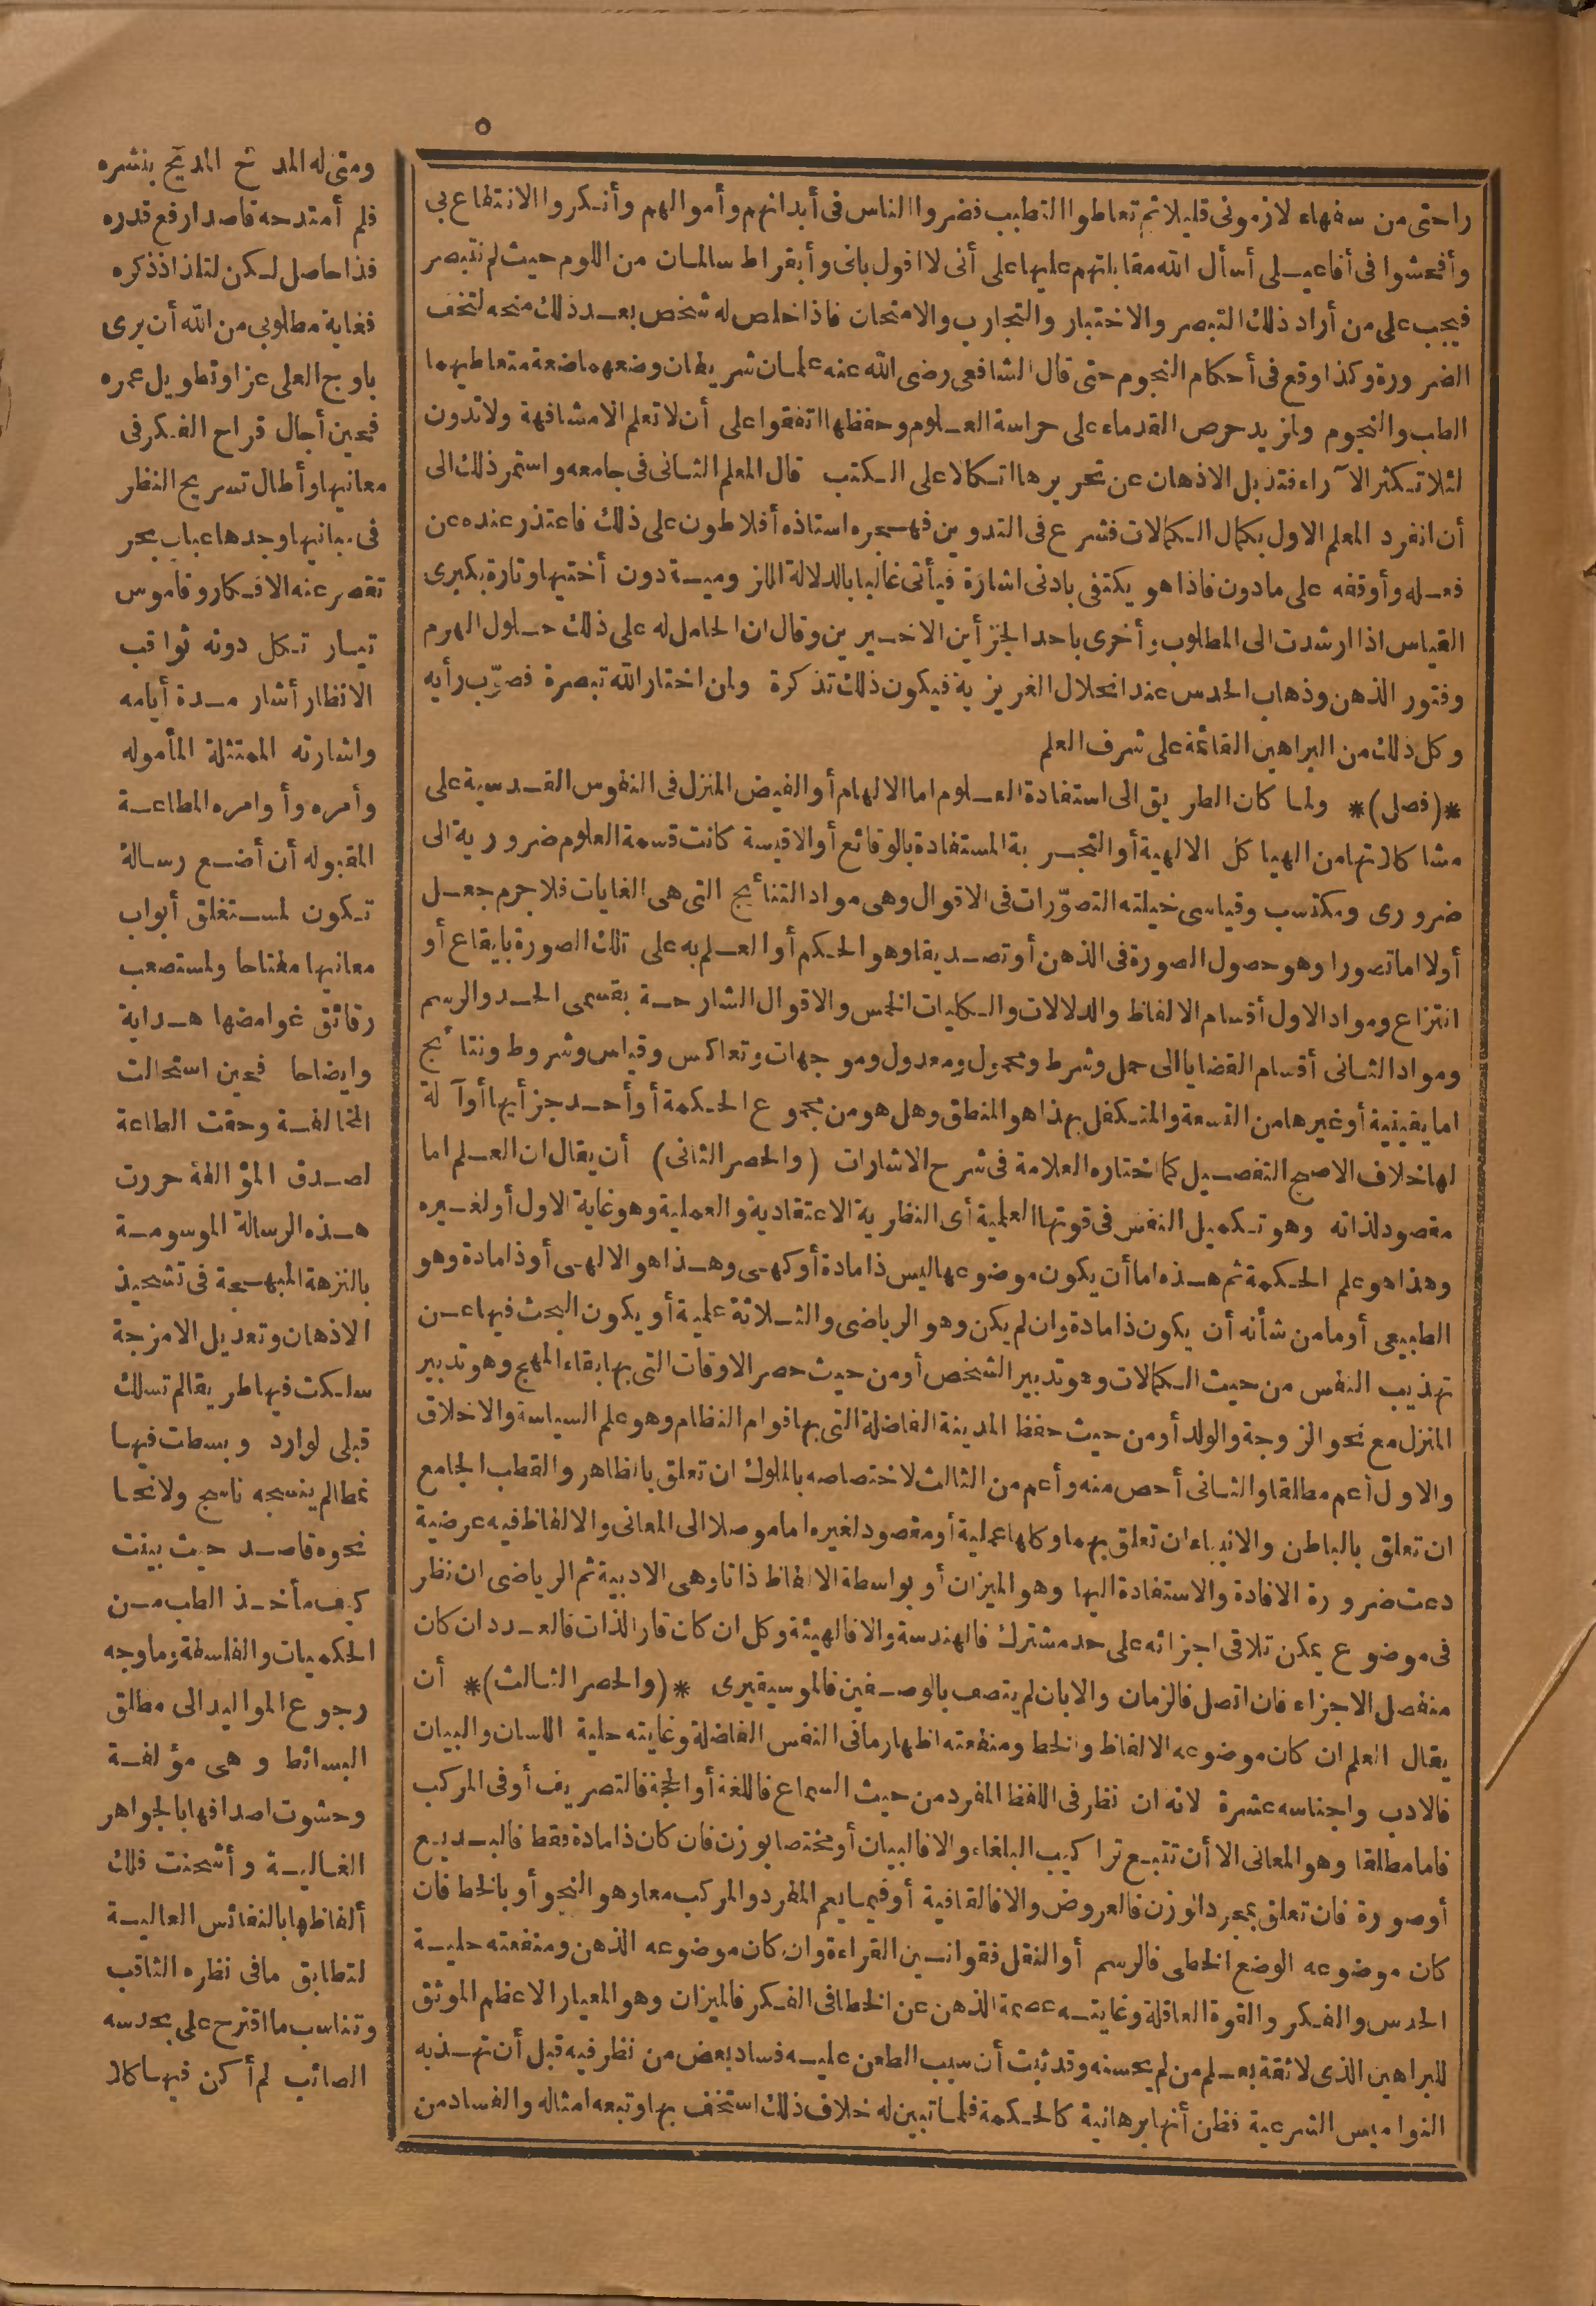 ٥
راحتى من سفهاء لازمونى قليلا ثم تعاطوا التطبب فضروا الناس فى أبدانهم وأموالهم وأنكروا الانتفاع بى
وأفحشوا فى أفاعيلى أسأل الله مقابلتهم عليها على أنى لا اقول بانى وأبقراط سالمان من اللوم حيث لم نتبصر
فيجب على من أراد ذلك التبصر والاختبار والتجارب والامتحان فاذا خلص له شخص بعد ذلك منحه لتخف
الضرورة وكذا وقع فى أحكام النجوم حتى قال الشافعى رضى الله عنه علمان شريفان وضعهما ضعة متعاطيهما
الطب والنجوم ولمزيد حرص القدماء على حراسة العلوم وحفظها اتفقوا على أن لا تعلم الا مشافهة ولا تدون
لئلا تكثر الآراء فتذبل الاذهان عن تحريرها اتكالا على الكتب قال المعلم الثانى فى جامعه واستمر ذلك الى
أن انفرد المعلم الاول بكمال الكمالات فشرع فى التدوين فهجره استاذه أفلاطون على ذلك فاعتذر عنده عن
فعله وأوقفه على ما دون فاذا هو يكتفى بادنى اشارة فيأتى غالبا بالدلالة اللزومية دون أختيها وتارة بكبرى
القياس اذا ارشدت الى المطلوب وأخرى باحد الجزأين الاخيرين وقال ان الحامل له على ذلك حلول الهرم
وفتور الذهن وذهاب الحدس عند انحلال الغريزية فيكون ذلك تذكرة ولمن اختار الله تبصرة فصوّب رأيه
وكل ذلك من البراهين القائمة على شرف العلم
*(فصل)* ولما كان الطريق الى استفادة العلوم اما الالهام أو الفيض المنزل فى النفوس القدسية على
مشاكلاتها من الهياكل الالهية أو التجربة المستفادة بالوقائع أو الاقيسة كانت قسمة العلوم ضرورية الى
ضرورى ومكتسب وقياسى خيلته التصوّرات فى الاقوال وهى مواد النتائج التى هى الغايات فلا جرم جعل
أولا اما تصورا وهو حصول الصورة فى الذهن أو تصديقا وهو الحكم أو العلم به على تلك الصورة بايقاع أو
انتزاع ومواد الاول أقسام الالفاظ والدلالات والكليات الخمس والاقوال الشارحة بقسمى الحد والرسم
ومواد الثانى أقسام القضايا الى حمل وشرط ومحمول ومعدول وموجهات وتعاكس وقياس وشروط ونتائج
اما يقينية أو غيرها من التسعة والمتكفل بهذا هو المنطق وهل هو من مجموع الحكمة أو أحد جزأيها أو آلة
لها خلاف الاصح التفصيل كما اختاره العلامة فى شرح الاشارات (والحصر الثانى) أن يقال ان العلم اما
مقصود لذاته وهو تكميل النفس فى قوتها العلمية أى النظرية الاعتقادية والعملية وهو غاية الاول أو لغيره
وهذا هو علم الحكمة ثم هذه اما أن يكون موضوعها ليس ذا مادة أو كهى وهذا هو الالهى أو ذا مادة وهو
الطبيعى أو ما من شأنه أن يكون ذا مادة وان لم يكن وهو الرياضى والثلاثة علمية أو يكون البحث فيها عن
تهذيب النفس من حيث الكمالات وهو تدبير الشخص أو من حيث حصر الاوقات التى بها بقاء المهج وهو تدبير
المنزل مع نحو الزوجة والولد أو من حيث حفظ المدينة الفاضلة التى بها قوام النظام وهو علم السياسة والاخلاق
والاول أعم مطلقا والثانى أخص منه وأعم من الثالث لاختصاصه بالملوك ان تعلق بالظاهر والقطب الجامع
ان تعلق بالباطن والانبياء ان تعلق بهما وكلها عملية أو مقصود لغيره اما موصلا الى المعانى والالفاظ فيه عرضية
دعت ضرورة الافادة والاستفادة اليها وهو الميزان أو بواسطة الالفاظ ذاتا وهى الادبية ثم الرياضى ان نظر
فى موضوع يمكن تلاقى اجزائه على حد مشترك فالهندسة والا فالهيئة وكل ان كان قار الذات فالعدد ان كان
منفصل الاجزاء فان اتصل فالزمان والا بان لم يتصف بالوصفين فالموسيقيرى *(والحصر الثالث)* أن
يقال العلم ان كان موضوعه الالفاظ والخط ومنفعته اظهار ما فى النفس الفاضلة وغايته حلية اللسان والبيان
فالادب واجناسه عشرة لانه ان نظر فى اللفظ المفرد من حيث السماع فاللغة أو الحجة فالتصريف أو فى المركب
فاما مطلقا وهو المعانى الا أن تتبع تراكيب البلغاء والا فالبيان أو مختصا بوزن فان كان ذا مادة فقط فالبديع
أو صورة فان تعلق بمجرد الوزن فالعروض والا فالقافية أو فيما يعم المفرد والمركب معا رهو النحو أو بالخط فان
كان موضوعه الوضع الخطى فالرسم أو النقل فقوانين القراءة وان كان موضوعه الذهن ومنفعته حلية
الحدس والفكر والقوة العاقلة وغايته عصمة الذهن عن الخطا فى الفكر فالميزان وهو المعيار الاعظم الموثق
للبراهين الذى لا ثقة بعلم من لم يحسنه وقد ثبت أن سبب الطعن عليه فساد بعض من نظر فيه قبل أن تهذبه
النواميس الشرعية فظن أنها برهانية كالحكمة فلما تبين له خلاف ذلك استخف بها وتبعه امثاله والفساد من
ومتى له المدح المديح بنشره
فلم أمتدحه قاصدا رفع قدره
فذا حاصل لكن لتلذاذ ذكره
فغاية مطلوبى من الله أن يرى
باوج العلى عزا وتطويل عمره
فحين أجال قراح الفكر فى
معانيها وأطال تسريح النظر
فى مبانيها وجدها عباب بحر
تقصر عنه الافكار وقاموس
تيار تكل دونه ثواقب
الانظار أشار مدة أيامه
واشارته الممتثلة المأموله
وأمره وأوامره المطاعة
المقبوله أن أضع رسالة
تكون لمستغلق أبواب
معانيها مفتاحا ولمستصعب
رقائق غوامضها هداية
وايضاحا فحين استحالت
المخالفة وحقت الطاعة
لصدق المؤالفة حررت
هذه الرسالة الموسومة
بالنزهة المبهجة فى تشحيذ
الاذهان وتعديل الامزجة
سلكت فيها طريقا لم تسلك
قبلى لوارد وبسطت فيها
نمطا لم ينسجه ناسج ولا نحا
نحوه قاصد حيث بينت
كيف مأخذ الطب من
الحكميات والفلسفة وما وجه
رجوع المواليد الى مطلق
البسائط وهى مؤلفة
وحشوت اصدافها بالجواهر
الغالية وأشحنت فلك
ألفاظها بالنفائس العالية
لتطابق ما فى نظره الثاقب
وتناسب ما اقترح على بحدسه
الصائب لم أكن فيها كلا